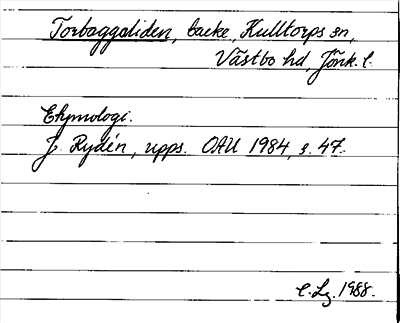 Torbaggaliden, backe, Kulltorps sn,
Västbo hd, Jönk. l.
Etymologi.
J. Rydén, upps. OAU 1984, s. 47.
C. Lg. 1988.